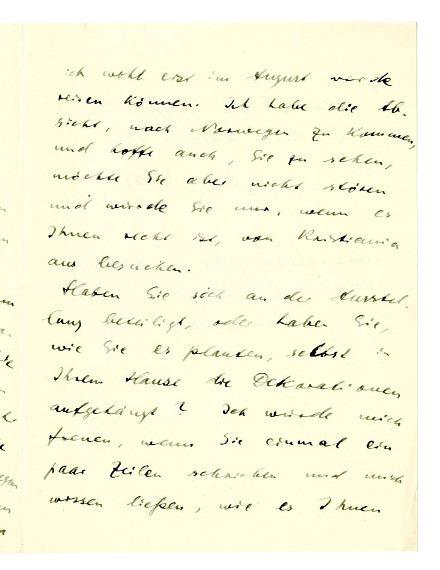 ich wohl erst im August würde
reisen können. Ich habe die Ab-
sicht, nach Norwegen zu kommen,
und hoffe auch, Sie zu sehen,
möchte Sie aber nicht stören
und würde Sie nur, wenn es
Ihnen recht ist, von Kristiania
aus besuchen.
Haben Sie sich an der Ausstel-
lung beteiligt, oder haben Sie,
wie Sie es planten, selbst in
Ihrem Hause die Dekorationen
aufgehängt? Ich würde mich
freuen, wenn Sie einmal ein
paar Zeilen schrieben und mich
wissen ließen, wie es Ihnen